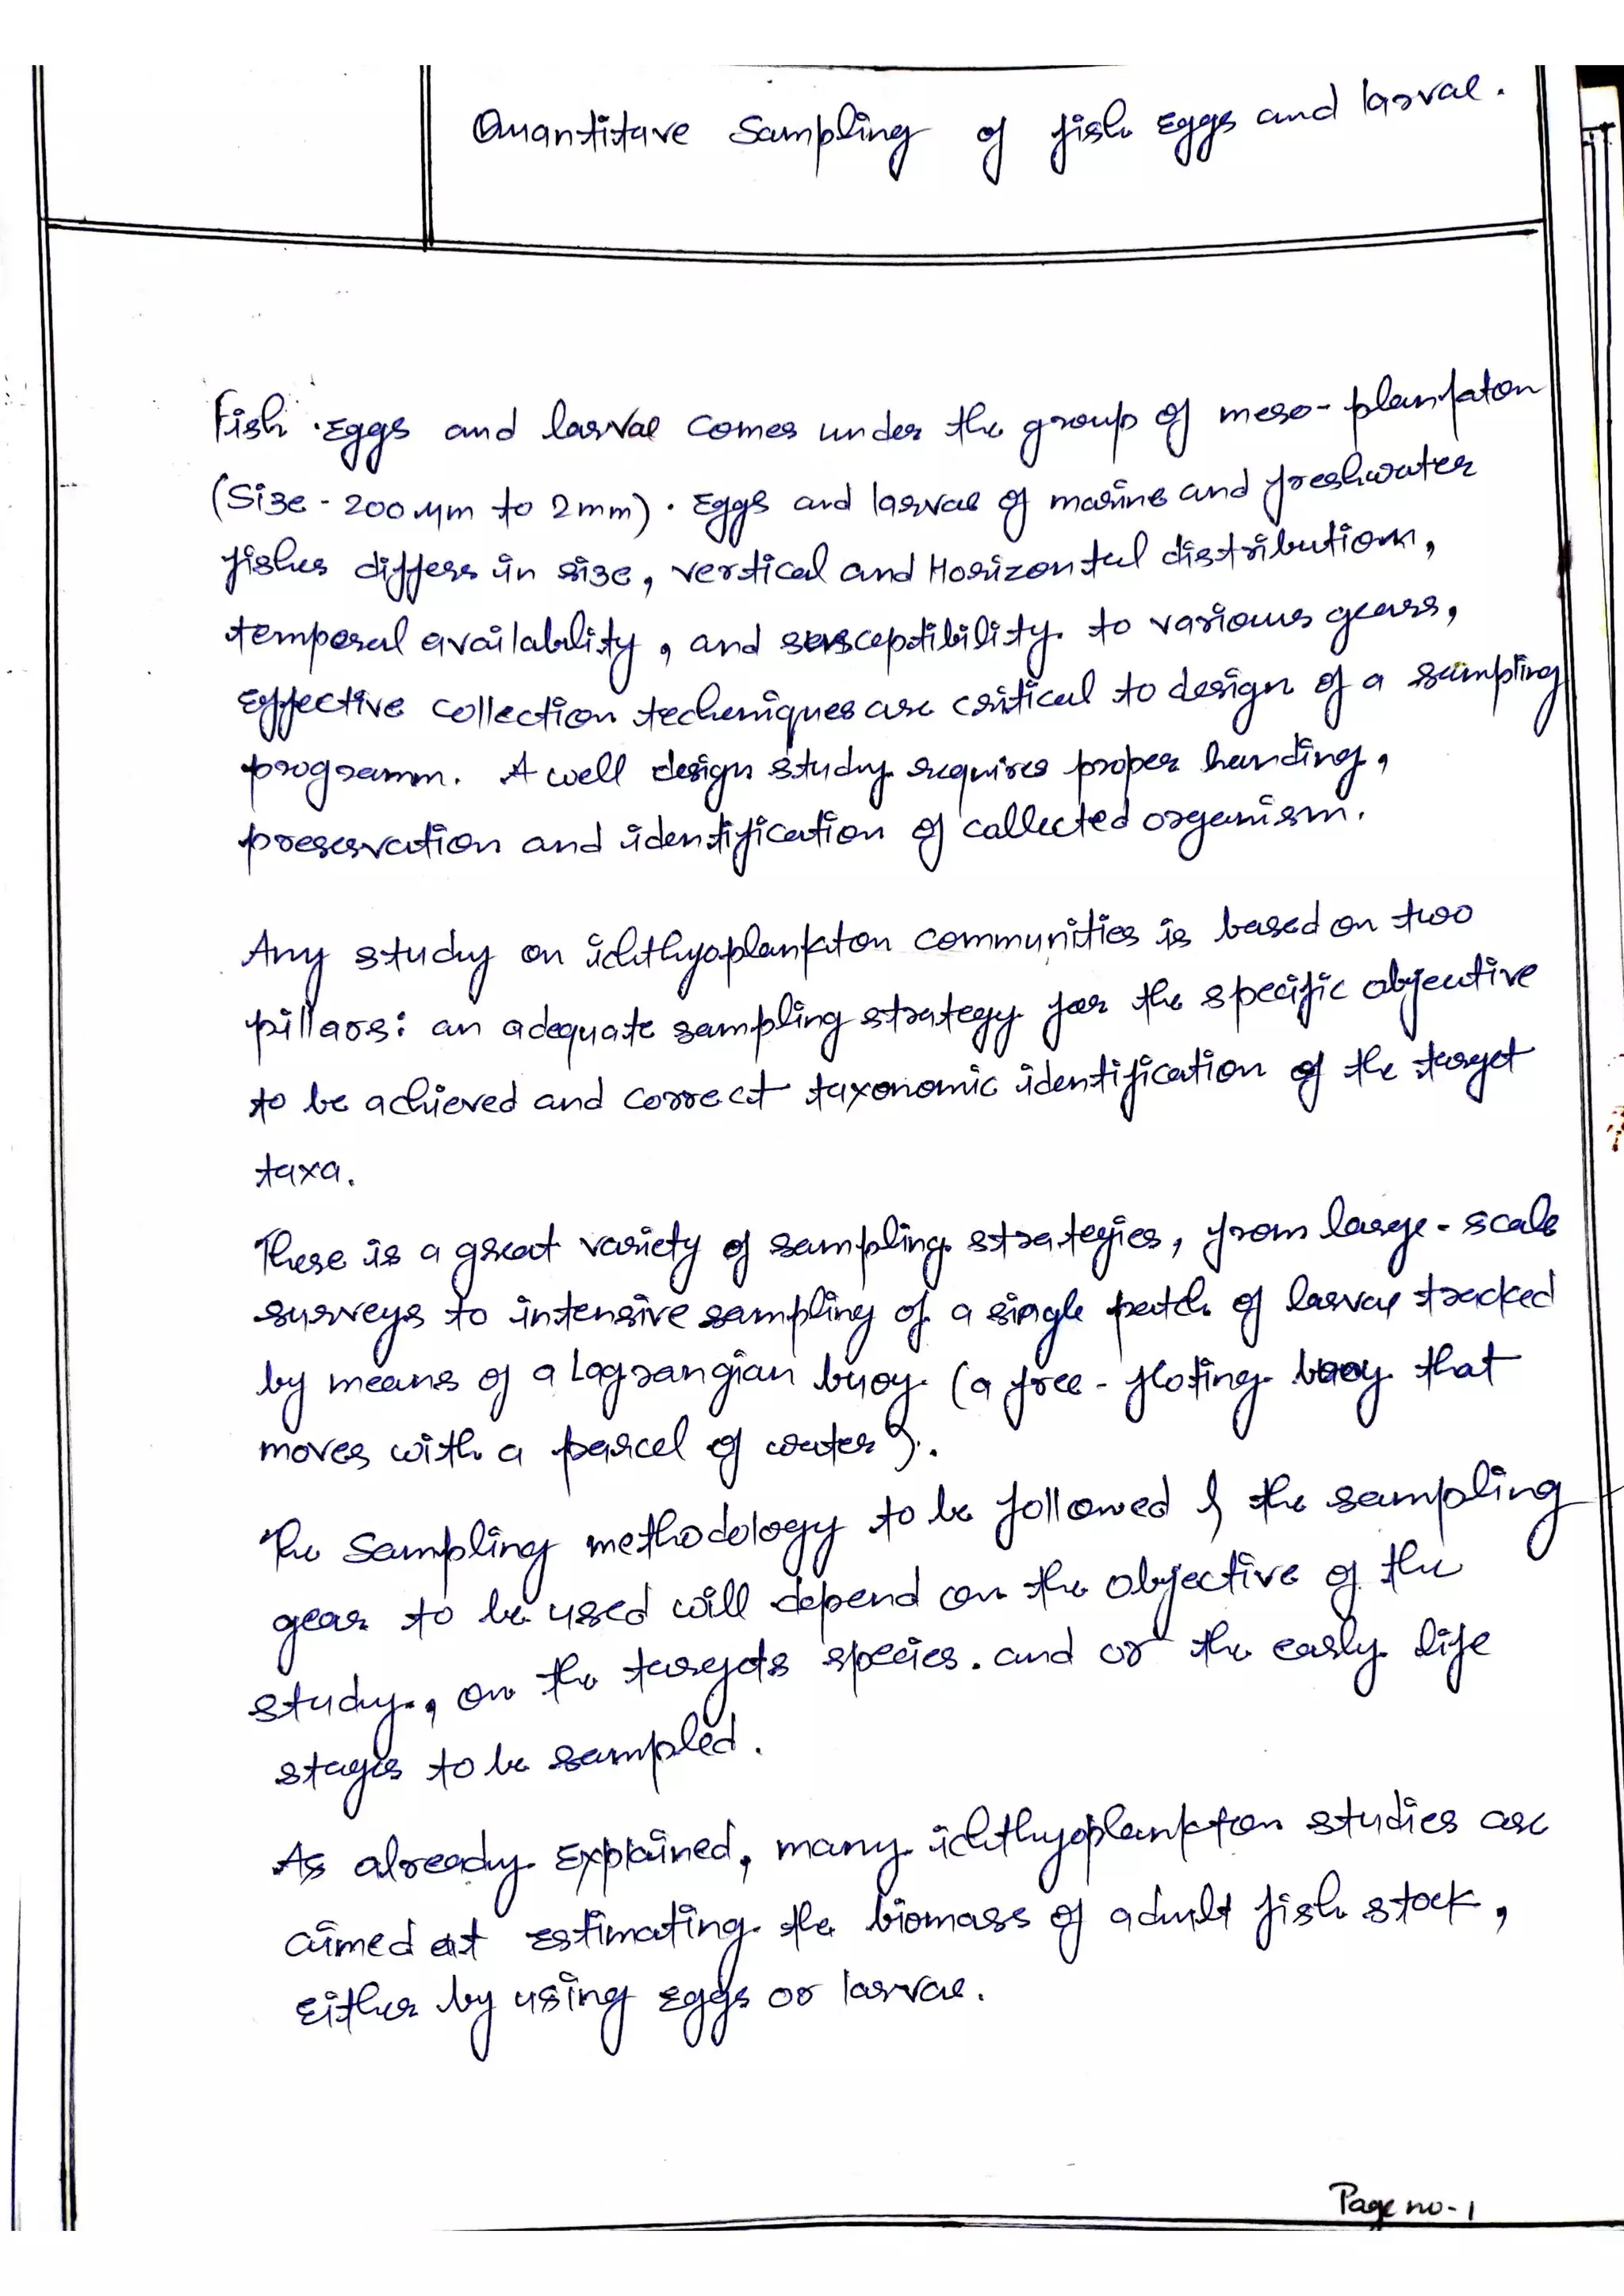 Quantitave Sampling of fish Eggs and larvae.
Fish Eggs and larvae comes under the group of meso-plankton
(Size - 200 μm to 2mm). Eggs and larvae of marine and freshwater
fishes differs in size, vertical and Horizontal distribution,
temporal availability, and susceptibility to various gears,
Effective collection techniques are critical to design of a sampling
programm. A well design study requires proper handing,
preservation and identification of collected organism.
Any study on ichthyoplankton communities is based on two
pillars: an adequate sampling strategy for the specific objective
to be achieved and correct taxonomic identification of the target
taxa.
There is a great variety of sampling strategies, from large-scale
surveys to intensive sampling of a single patch of larvae tracked
by means of a Lagrangian buoy (a free-floting buoy that
moves with a parcel of water).
The Sampling methodology to be followed & the sampling
gear to be used will depend on the objective of the
study, on the targets species. and or the early life
stages to be sampled.
As already Explained, many ichthyoplankton studies are
aimed at Estimating the biomass of adult fish stock,
Either by using Eggs or larvae.
Page no-1